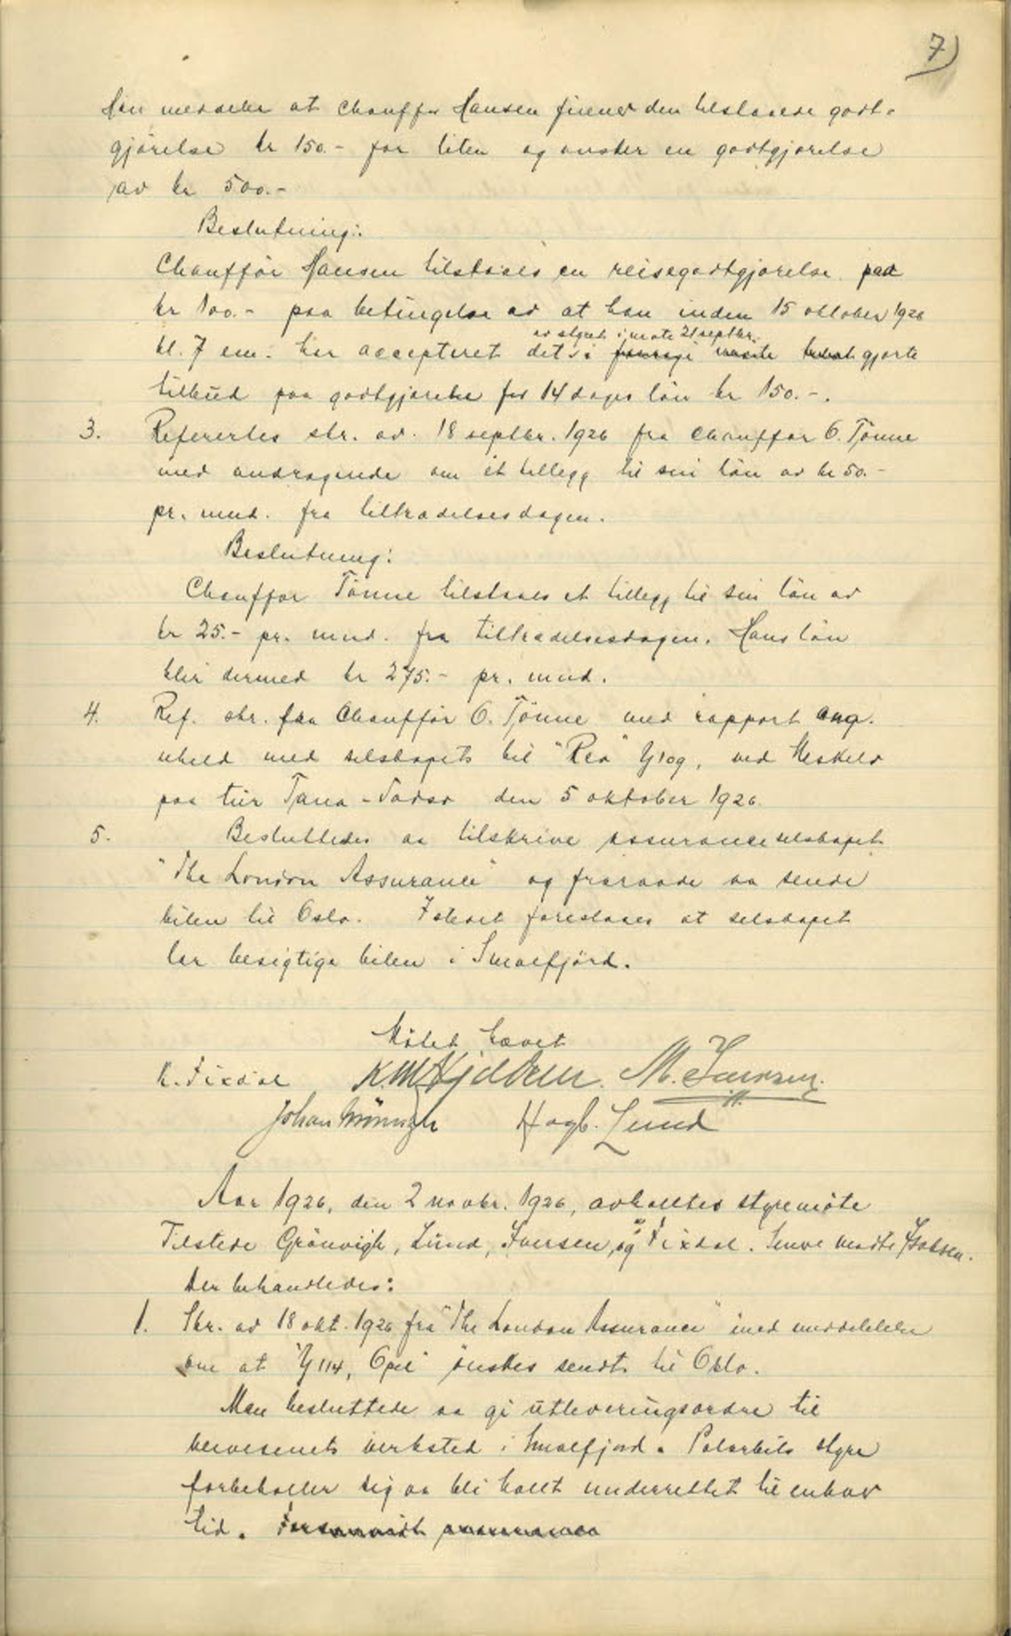 7)
Han meddeler at chauffør Hansen finner den tilstaaede godt-
gjørelse kr 150.- for liten og ønsker en godtgjørelse
av kr 500.-
Beslutning:
Chauffør Hansen tilstaaes en reisegodtgjørelse paa
kr 100.- paa betingelse av at han inden 15 oktober 1926
kl. 7 em. har accepteret det av styret i møte 21 septbr. gjorte
tilbud paa godtgjørelse for 14 dages løn kr 150.-.
3. Referertes skr. av 18 septbr. 1926 fra chauffør O. Tønne
med andragende om et tillegg til sin løn av kr 50.-
pr. mnd. fra tiltrædelsesdagen.
Beslutning:
Chauffør Tønne tilstaaes et tillegg til sin løn av
kr 25.- pr. mnd. fra tiltrædelsesdagen. Hans løn
blir dermed kr 275.- pr. mnd.
4. Ref. skr. fra Chauffør O. Tønne med rapport ang.
uheld med selskapets bil "Reo" Y109, ved
paa tur Tana - Vadsø den 5 oktober 1926.
5. Besluttedes aa tilskrive assuranceselskapet
"The London Assurance" og fraraade aa sende
bilen til Oslo. I stedet foreslaaes at selskapet
lar besigtige bilen i Smalfjord.
Møtet hævet
K. Fixdal M. Iversen.
Johan Grønvigh Hagb. Lund
Aar 1926, den 2 novbr. 1926, avholdtes styremøte
Tilstede Grønvigh, Lund, Iversen, og Fixdal.
Der behandledes:
1. Skr. av 18 okt. 1926 fra "The London Assurance" med meddelelse
om at "Y114, Opel" ønskes sendt til Oslo.
Man besluttede aa gi utleveringsordre til
veivesenets verksted i Smalfjord. Polarbils styre
forbeholder sig aa bli holdt underrettet til enhver
tid.